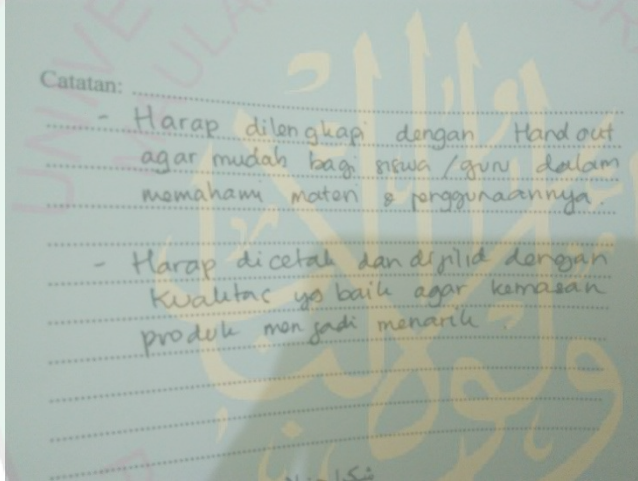 Catatan:
- Harap dilengkapi dengan Hand out
agar mudah bagi siswa / guru dalam
memahami materi & penggunaannya.
- Harap dicetak dan dijilid dengan
kualitas yg baik agar kemasan
produk menjadi menarik.